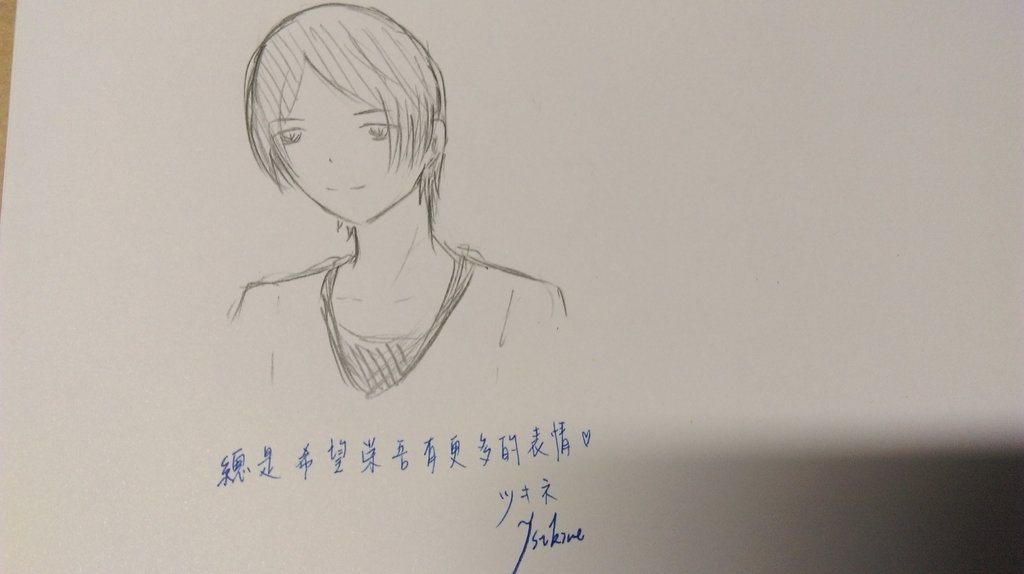 總是希望榮吾有更多的表情♡
ツキネ
Tsukine